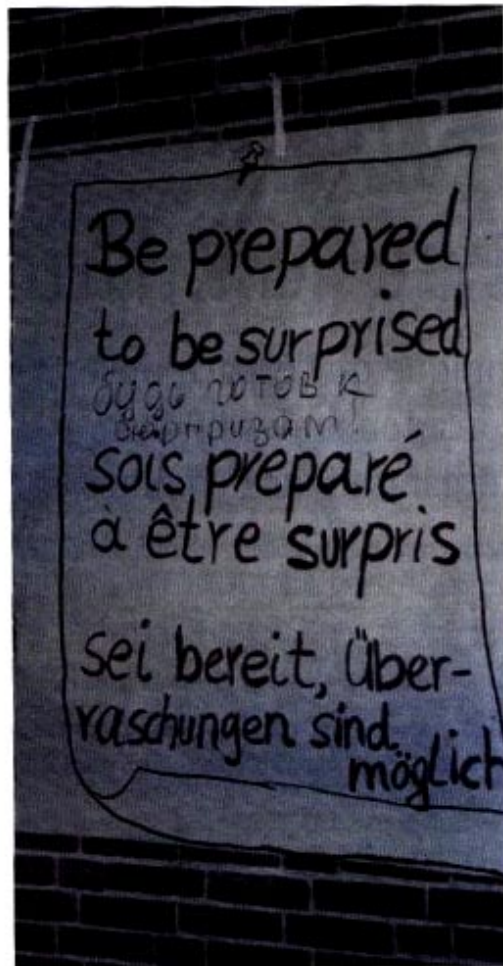 Be prepared
to be surprised
будь готов к
сюрпризам!
sois preparé
à être surpris
sei bereit, Über-
raschungen sind
möglich